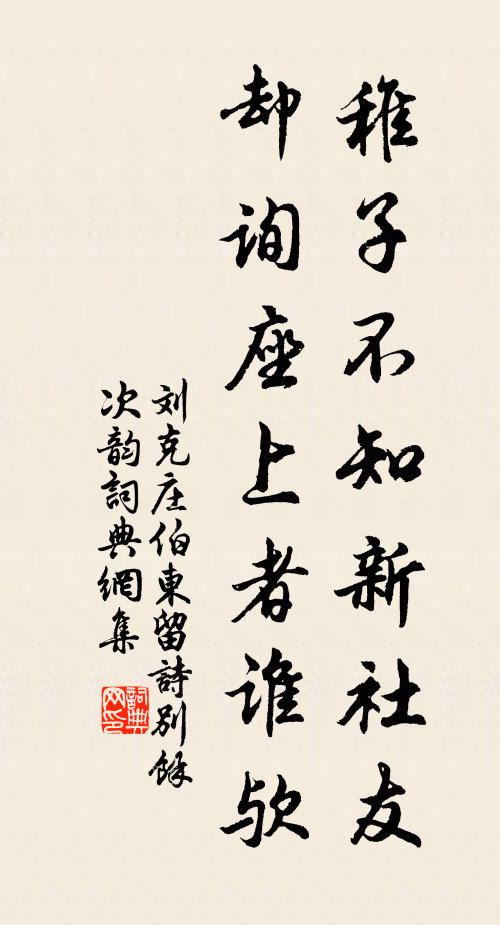 稚子不知新社友
却詢座上者誰欤
刘克庄伯東留詩別餘
次韵詞典網集
詞典
网印